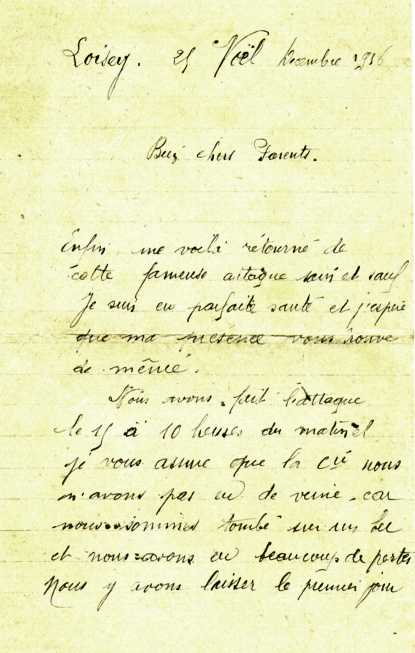 Loisey. 25 Noël Décembre 1916
Bien chers Parents.
Enfin me voilà retourné de
cette fameuse attaque sain et sauf
Je suis en parfaite santé et j'espère
que ma présence vous trouve
de même.
Nous avons fait l'attaque
le 15 à 10 heures du matin et
je vous assure que la Cie nous
n'avons pas eu de veine. car
nous sommes tombé sur un bec
et nous avons eu beaucoup de pertes
Nous y avons laisser le premier jour